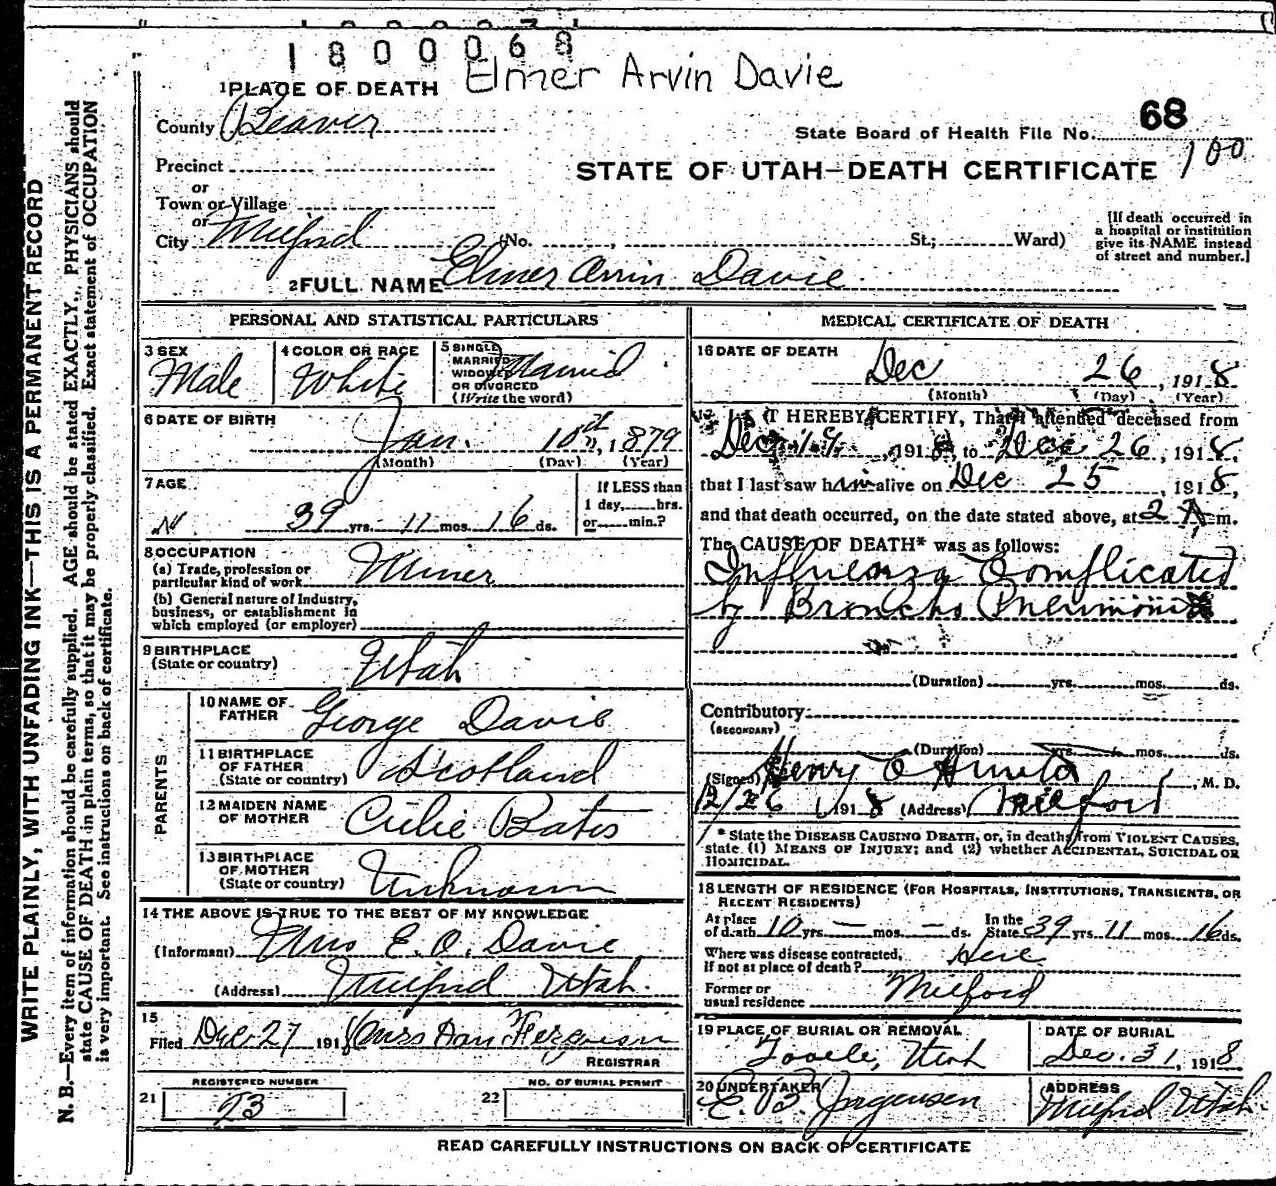 1800068
Elmer Arvin Davie
1 PLACE OF DEATH
County Beaver
68
State Board of Health File No.
100
Precinct
STATE OF UTAH—DEATH CERTIFICATE
or
Town or Village
or
City Milford (No. , St.; Ward)
[If death occurred in
a hospital or institution
give its NAME instead
of street and number.]
2 FULL NAME Elmer Arvin Davie
PERSONAL AND STATISTICAL PARTICULARS
3 SEX
Male
4 COLOR OR RACE
White
5 SINGLE
MARRIED
WIDOWED
OR DIVORCED
(Write the word)
Married
6 DATE OF BIRTH
Jan. 10th, 1879
(Month) (Day) (Year)
7 AGE
39 yrs — 11 mos. 16 ds.
If LESS than
1 day, hrs.
or min.?
8 OCCUPATION
(a) Trade, profession or
particular kind of work Miner
(b) General nature of Industry,
business, or establishment in
which employed (or employer)
9 BIRTHPLACE
(State or country) Utah
PARENTS
10 NAME OF
FATHER George Davie
11 BIRTHPLACE
OF FATHER
(State or country) Scotland
12 MAIDEN NAME
OF MOTHER Bates
13 BIRTHPLACE
OF MOTHER
(State or country) Unknown
14 THE ABOVE IS TRUE TO THE BEST OF MY KNOWLEDGE
(Informant) Mrs E. A. Davie
(Address) Milford Utah.
15
Filed Dec. 27 1918 Mrs Ann Ferguson
REGISTRAR
REGISTERED NUMBER
21 73
NO. OF BURIAL PERMIT
22
MEDICAL CERTIFICATE OF DEATH
16 DATE OF DEATH
Dec 26, 1918
(Month) (Day) (Year)
17 I HEREBY CERTIFY, That I attended deceased from
Dec 19, 1918, to Dec 26, 1918,
that I last saw him alive on Dec 25, 1918,
and that death occurred, on the date stated above, at 2 A m.
The CAUSE OF DEATH* was as follows:
Influenza Complicated
by Broncho Pneumonia
(Duration) yrs. mos. ds.
Contributory
(SECONDARY)
(Duration) yrs. mos. ds.
(Signed) Henry , M. D.
12/26 1918 (Address) Milford
* State the DISEASE CAUSING DEATH, or, in deaths from VIOLENT CAUSES,
state (1) MEANS OF INJURY; and (2) whether ACCIDENTAL, SUICIDAL OR
HOMICIDAL.
18 LENGTH OF RESIDENCE (FOR HOSPITALS, INSTITUTIONS, TRANSIENTS, OR
RECENT RESIDENTS)
At place In the
of death 10 yrs. — mos. — ds. State 39 yrs. 11 mos. 16 ds.
Where was disease contracted,
If not at place of death? Here
Former or
usual residence Milford
19 PLACE OF BURIAL OR REMOVAL
Tooele, Utah
DATE OF BURIAL
Dec. 31, 1918
20 UNDERTAKER
E. B. Jorgensen
ADDRESS
Milford Utah.
READ CAREFULLY INSTRUCTIONS ON BACK OF CERTIFICATE
WRITE PLAINLY, WITH UNFADING INK—THIS IS A PERMANENT RECORD
N. B.—Every item of information should be carefully supplied. AGE should be stated EXACTLY. PHYSICIANS should
state CAUSE OF DEATH in plain terms, so that it may be properly classified. Exact statement of OCCUPATION
is very important. See instructions on back of certificate.